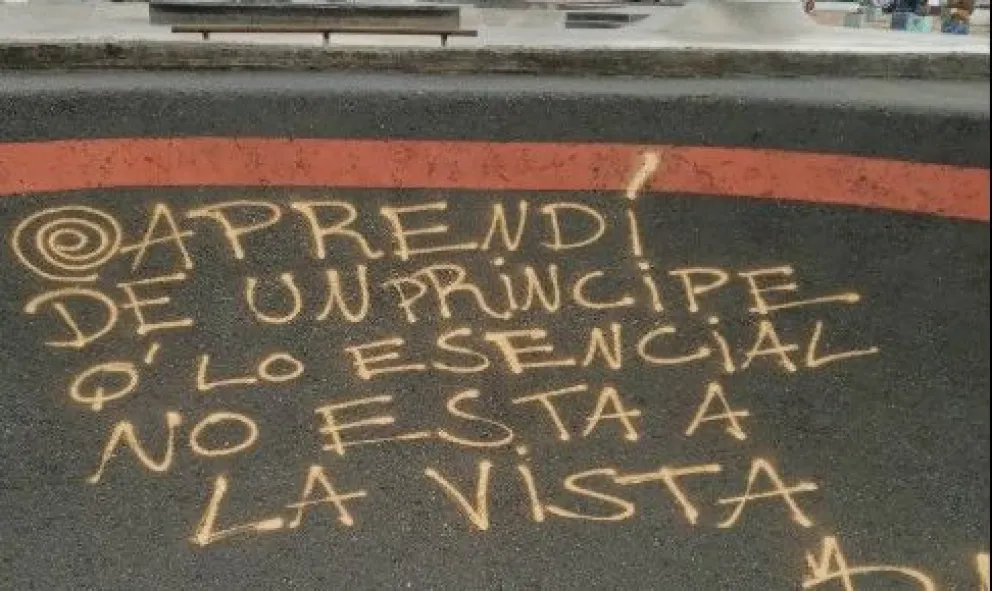 APRENDÍ
DE UN PRiNCiPE
Q' LO ESENCiAL
NO ESTA A
LA ViSTA